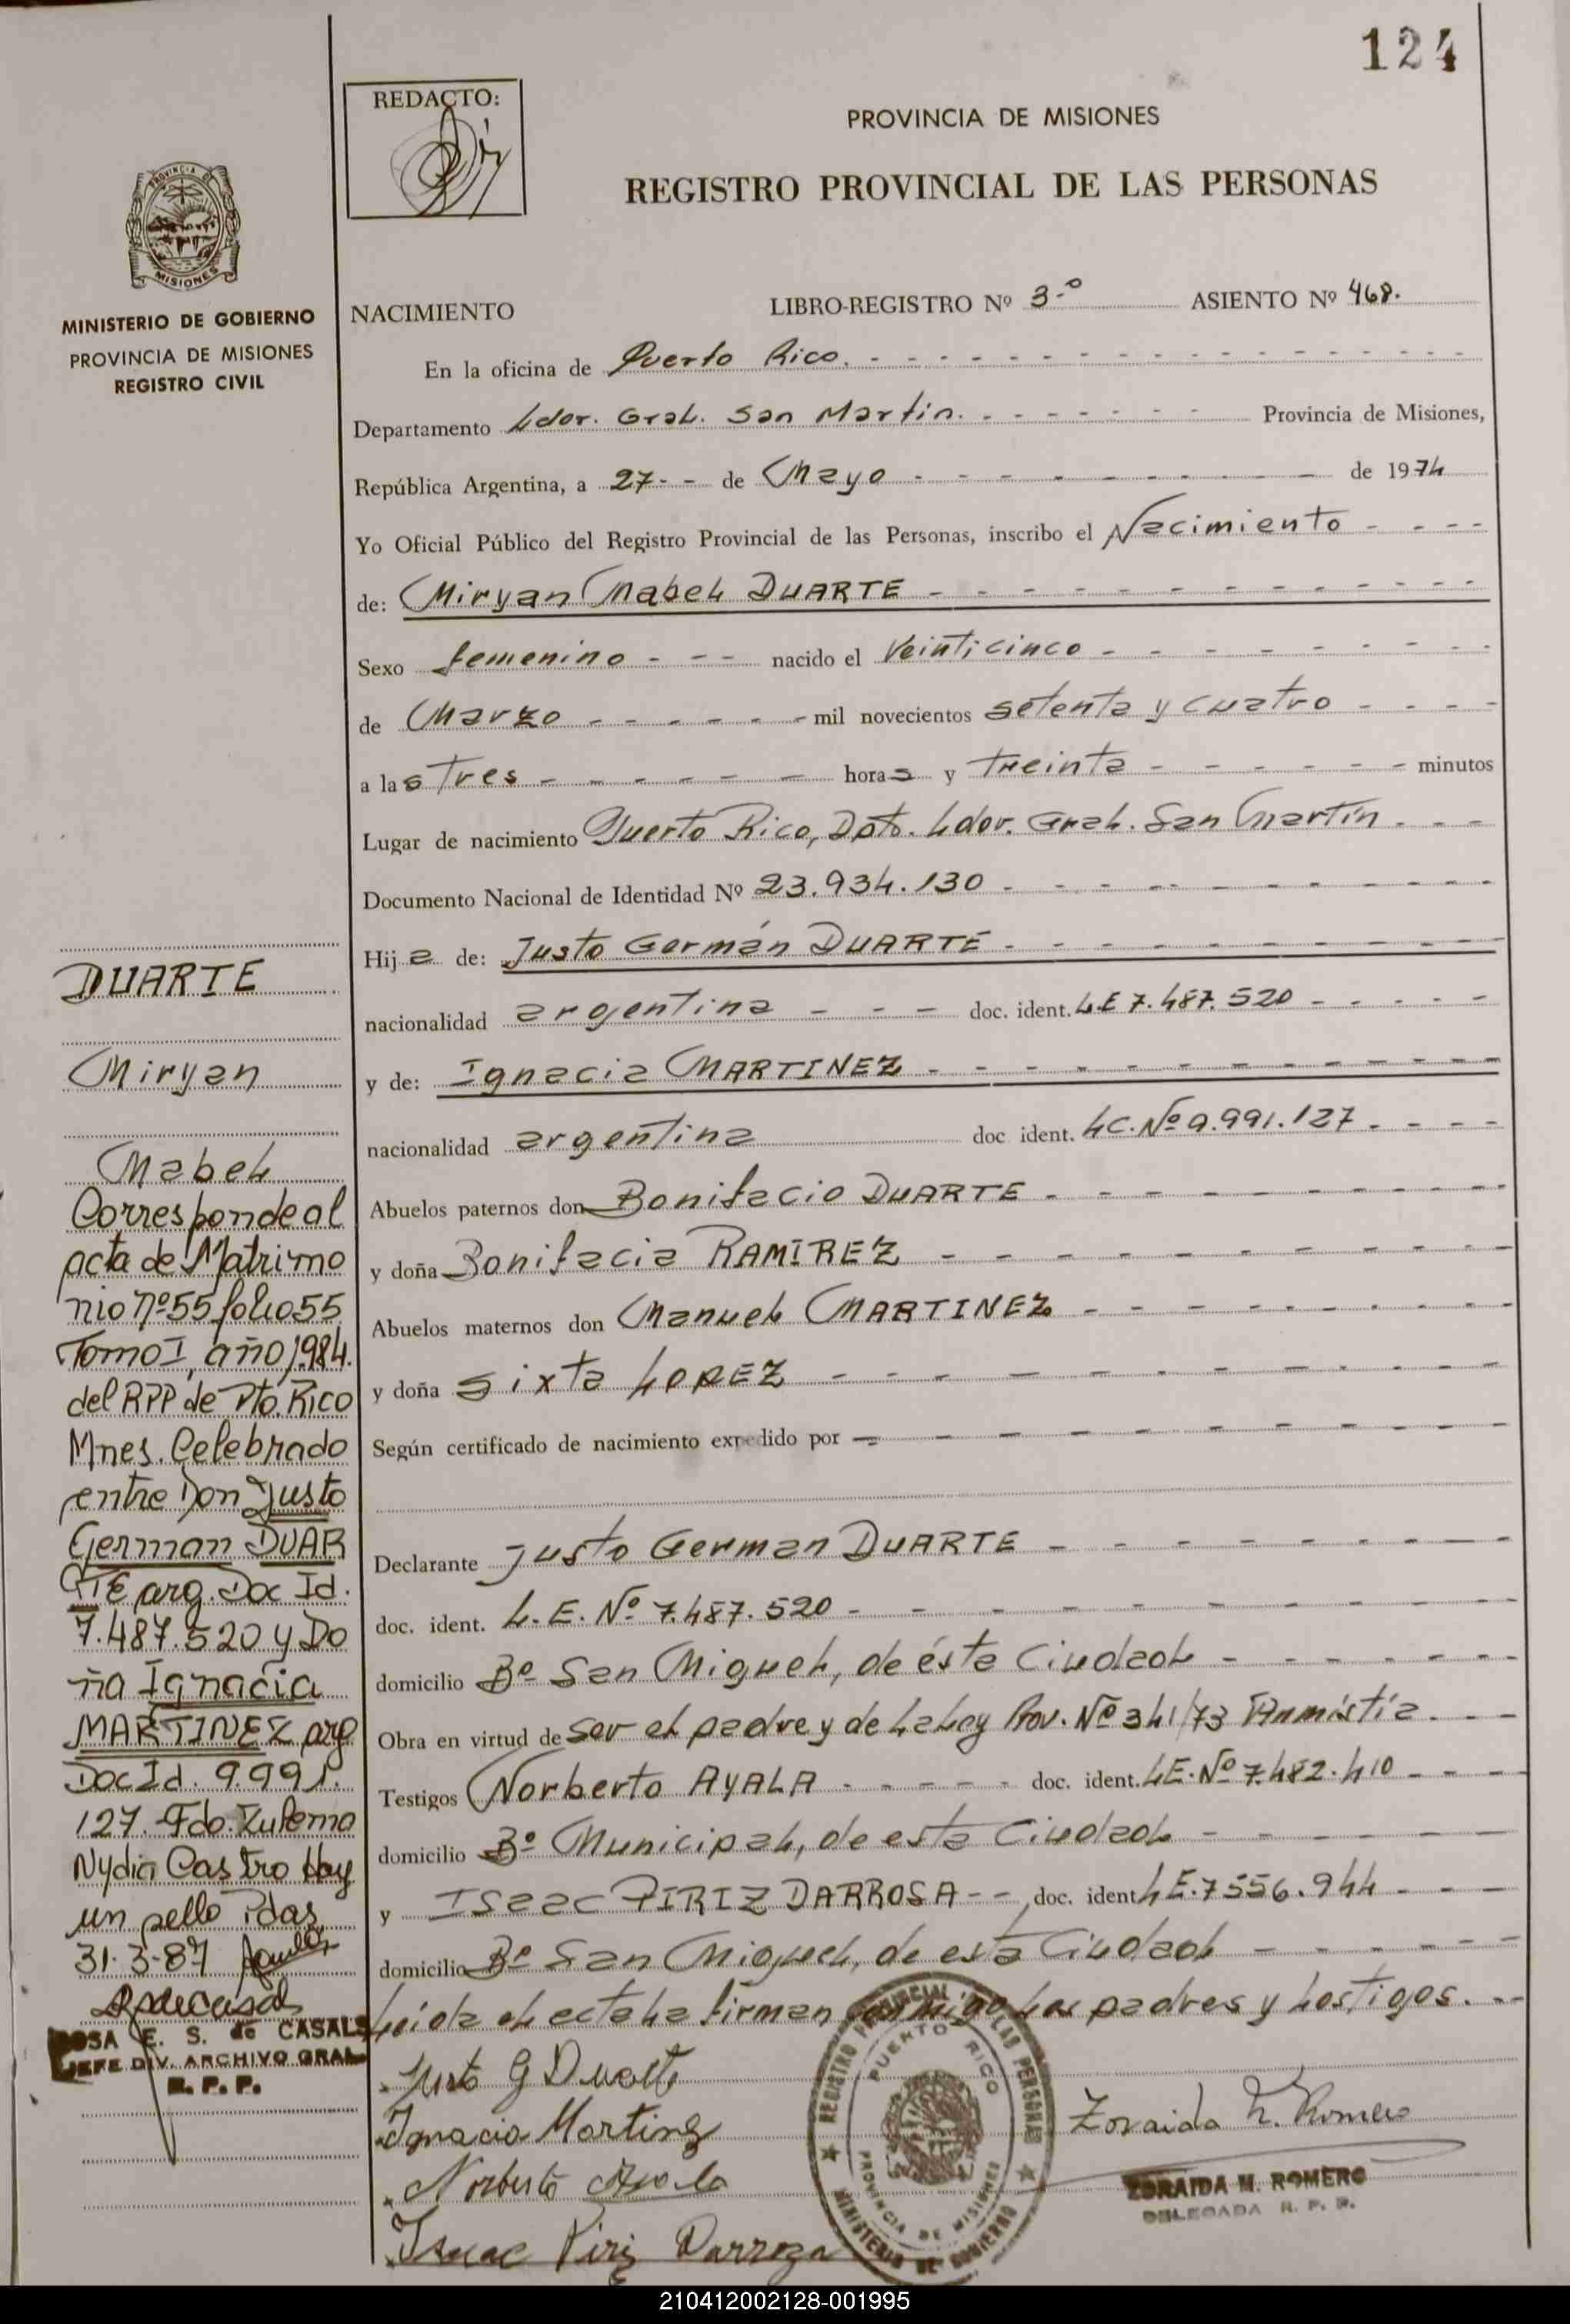 124
REDACTO:
PROVINCIA DE MISIONES
REGISTRO PROVINCIAL DE LAS PERSONAS
PROVINCIA DE
MISIONES
MINISTERIO DE GOBIERNO
PROVINCIA DE MISIONES
REGISTRO CIVIL
NACIMIENTO LIBRO-REGISTRO Nº 3-º ASIENTO Nº 468.
En la oficina de Puerto Rico.
Departamento Ldor. Gral. San Martin. Provincia de Misiones,
República Argentina, a 27 de Mayo de 1974
Yo Oficial Público del Registro Provincial de las Personas, inscribo el Nacimiento
de: Miryan Mabel DUARTE
Sexo femenino nacido el Veinticinco
de Marzo mil novecientos setenta y cuatro
a las Tres horas y Treinta minutos
Lugar de nacimiento Puerto Rico, Dpto. Ldor. Gral. San Martín
Documento Nacional de Identidad Nº 23.934.130
Hija de: Justo Germán DUARTE
nacionalidad argentina doc. ident. LE 7.487.520
y de: Ignacia MARTINEZ
nacionalidad argentina doc ident. LC. Nº 9.991.127
Abuelos paternos don Bonifacio DUARTE
y doña Bonifacia RAMIREZ
Abuelos maternos don Manuel MARTINEZ
y doña Sixta LOPEZ
Según certificado de nacimiento expedido por
Declarante Justo German DUARTE
doc. ident. L.E. Nº 7.487.520
domicilio Bº San Miguel, de ésta Ciudad
Obra en virtud de ser el padre y de la Ley Prov. Nº 341/73 Amnistía.
Testigos Norberto AYALA doc. ident. LE. Nº 7.482.410
domicilio Bº Municipal, de esta Ciudad
y ISaac PIRIZ DARROSA doc. ident LE. 7556.944
domicilio Bº San Miguel, de esta Ciudad
Leída el acta la firman conmigo los padres y testigos.
Justo G Duarte
Ignacia Martinez
Norberto Ayala
Isaac Piriz Darroza
REGISTRO PROVINCIAL DE LAS PERSONAS
PUERTO RICO
PROVINCIA DE MISIONES
MINISTERIO DE GOBIERNO
Zoraida N. Romero
ZORAIDA N. ROMERO
DELEGADA R. P. P.
DUARTE
Miryan
Mabel
Corresponde al
acta de Matrimo
nio nº 55 folio 55
Tomo I, año 1984.
del RPP de Pto. Rico
Mnes. Celebrado
entre Don Justo
German DUAR
TE arg. Doc Id.
7.487.520 y Do
ña Ignacia
MARTINEZ arg
Doc Id. 9.991.
127. Fdo. Zulema
Nydia Castro Hay
un sello Pdas
31.3.87
ROSA E. S. de CASALS
JEFE DIV. ARCHIVO GRAL
R. P. P.
210412002128-001995